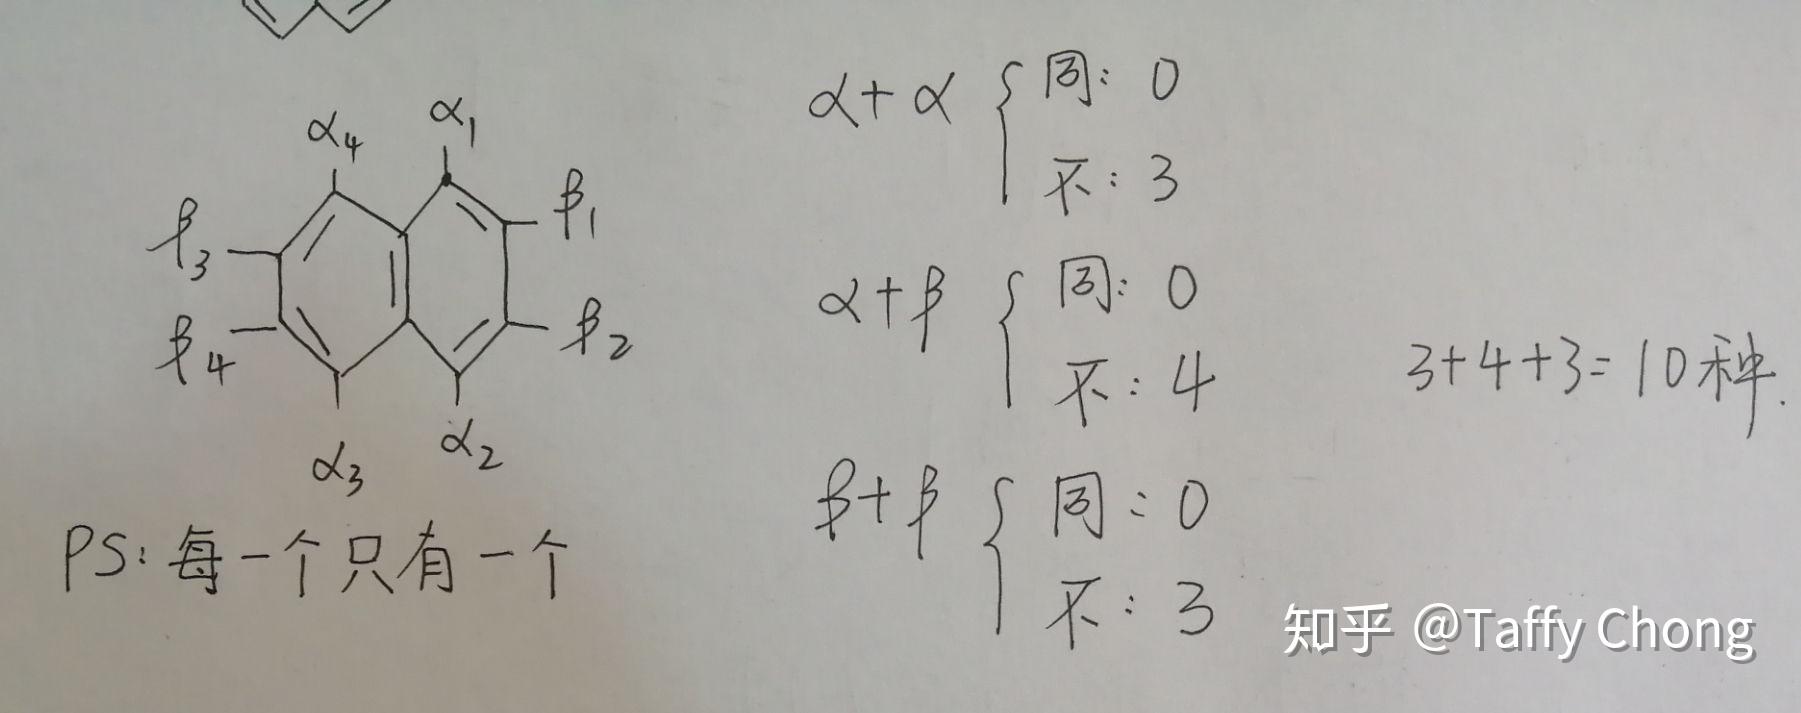 α₄ α₁
β₃ β₁
β₄ β₂
α₃ α₂
PS: 每一个只有一个
α+α { 同: 0
不: 3
α+β { 同: 0
不: 4
β+β { 同: 0
不: 3
3+4+3=10种.
知乎 @Taffy Chong